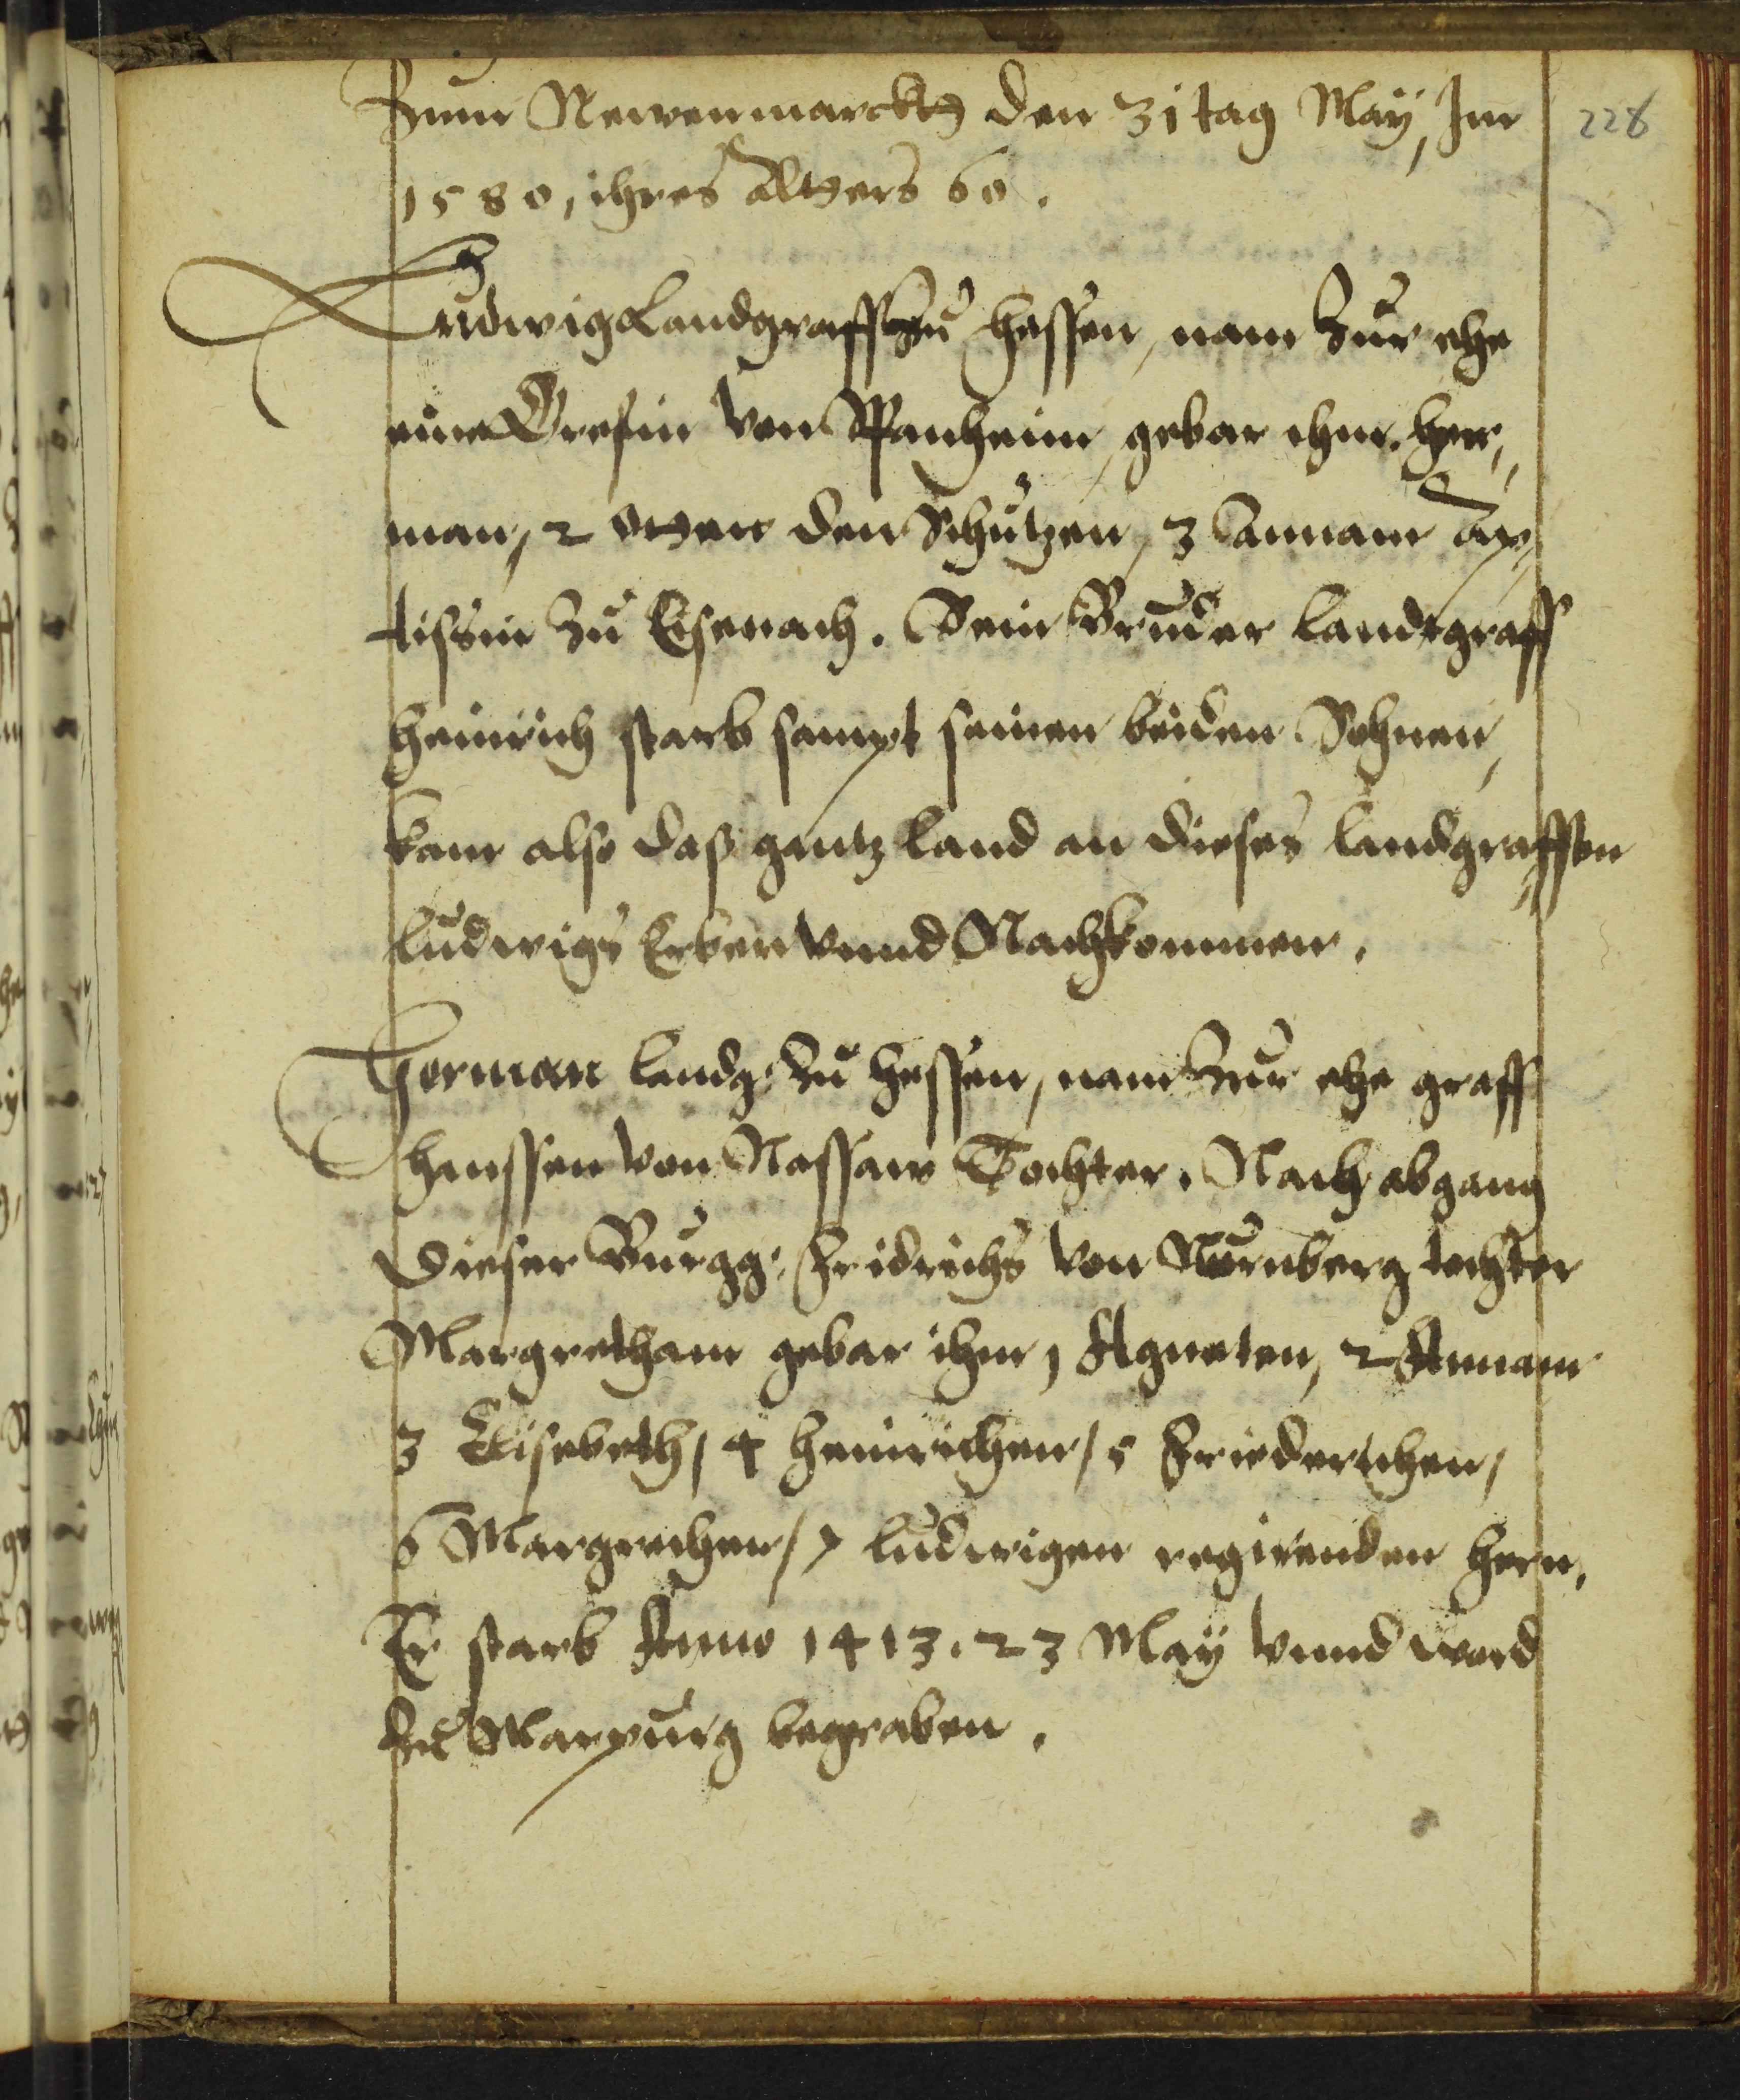 Zum Newenmarckth den 31 tag Maÿ, Im
228
1580, ihres Altters 60.
Ludwig Landgraff zu Hessen, nam zur ehe
eine Grefin von Spanheim, gebar ihm. Her„
man, 2 Otten den Schützen, 3 Annam Ap„
tissin zu Eisenach. Sein Bruder Landtgraff
Heinrich starb sampt seinen beiden Sohnen,
kam also daß gantz Land an dieses Landgraffen
Ludwigs Erben vnnd Nachkommen.
Herman Landg: zu Hessen, nam zur ehe graff
Hanssen von Nassaw Tochter. Nach abgang
dieser Burgg: Fridrichs von Nürnberg tochter
Margretham gebar ihm 1 Agneten, 2 Annam
3 Elisebeth, 4 Heinrichen, 5 Friederichen,
6 Margrethen, 7 Ludwigen regirenden Hern.
Er starb Anno 1413. 23 Maÿ vnnd ward
zu Marpurg begraben.